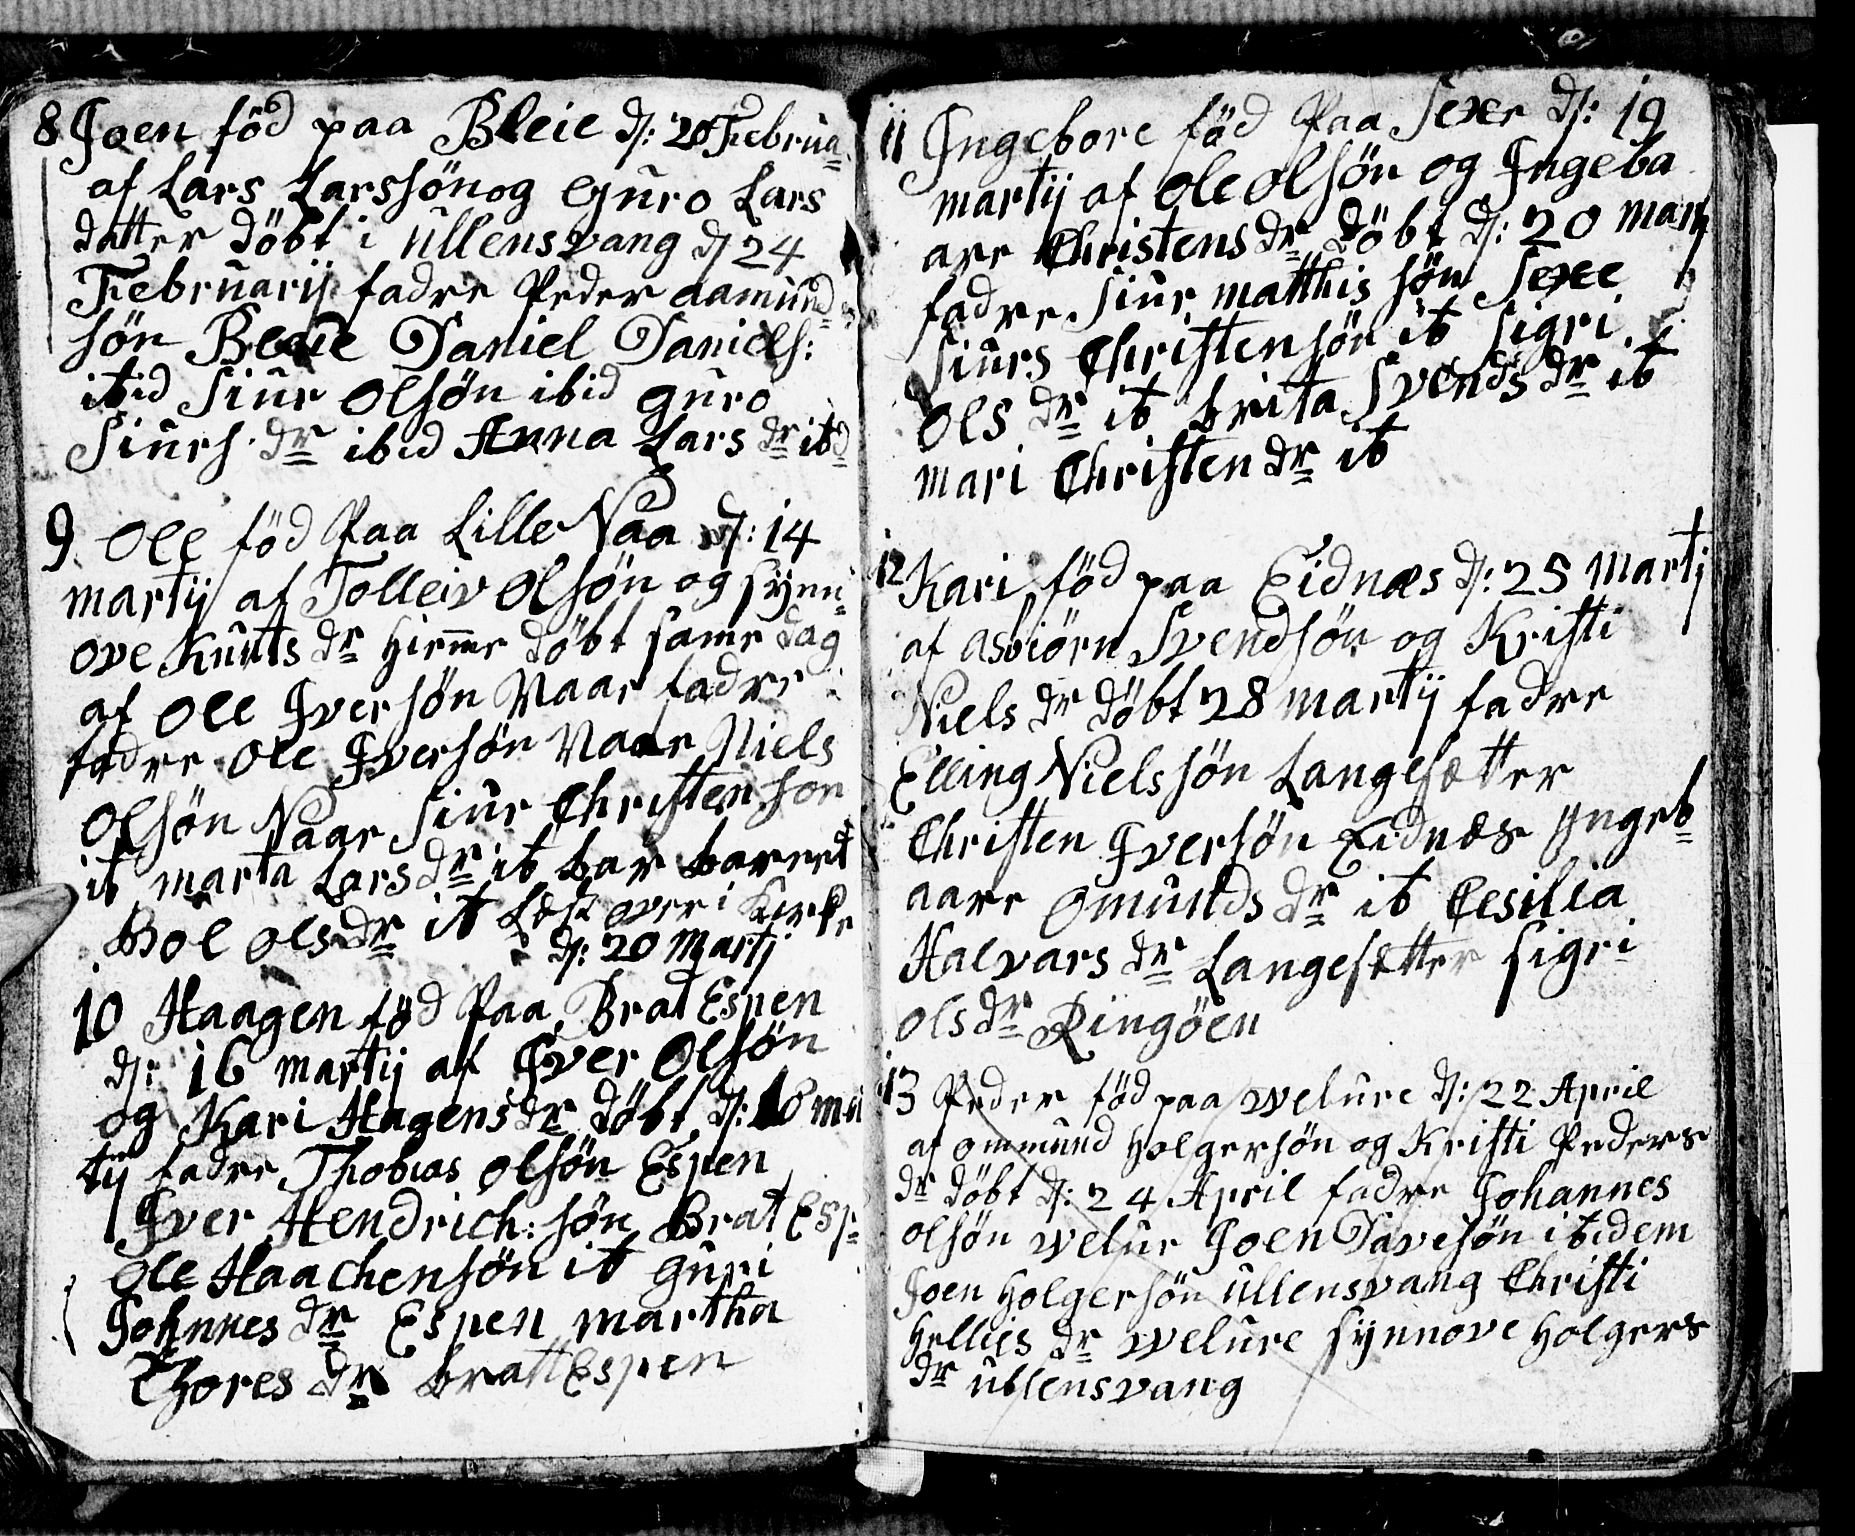 8 Joen fôd paa Bleie dʃ: 20 Februa
af Lars Larssön og Guro Lars
datter döbt i Ullensvang dʃ 24
Februarij fadre Peder Aamund
sön Bleie Daniel Daniels:
ibid Siur Olsön ibid Guro
Siurs dr ibid Anna Lars dr ibd
9. Ole föd Paa Lille Naa dʃ: 14
martij af Tolleiv Olsön og Synn
ove Knuts dr hieme döbt same dag
af Ole Iversön Naar fadre
fadre Ole Iversön Naar Niels
Olsön Naar Siur Christenson
ib marta Lars dr ib bar barnet
Boel Ols dr ib Læst over i Kirke
dʃ: 20 Martj
10 Haagen föd Paa Brat Espen
dʃ: 16 martij af Iver Olsön
og Kari Hagens dr döbt dʃ: mar
tij fadre Thobias Olsön Espen
Iver Hendrich: sön Brat Esp
Ole Haachensön ib guri
Johnnes dr Espen martha
Thores dr bratt Espen
11 Ingebore föd Paa Sexe dʃ: 19
martij af Ole Olsön og Ingeba
are Christens dr döbt dʃ: 20 mart
fadre Siur matthis sön Sexe
Siurs Christensön ib Sigri
Ols dr ib brita Svends dr ib
mari Christen dr ib
12 Kari föd paa Eidnæs dʃ: 25 Martj
af Asbiörn Svendsön og Kristi
Niels dr döbt 28 martij fadre
Elling Nielssön Langesætter
Christen Iversön Eidnæs Ingeb
aare Omunds dr ib Cesilia
Halvars dr Langesætter sigri
ols dr Ringöen
13 Peder föd paa Welure dʃ: 22 April
af ommund Holgersön og Kristi Peders
dr döbt dʃ: 24 April fadre Johannes
olsön Welur Joen Davesön ibidem
Joen Holgersön Ullensvang Christi
Hellies dr Welure Synnove Holgers
dr ullensvang